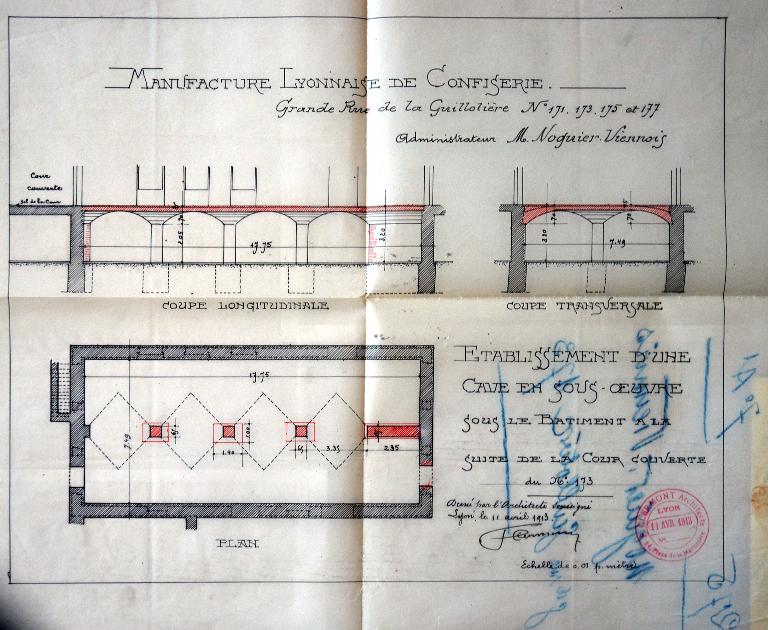 MANUFACTURE LYONNAISE DE CONFISERIE.
Grande Rue de la Guillotière Nos 171. 173. 175 et 177
Administrateur M. Noguier-Viennois
Cour
couverte
sol de la Cour
17.75
2.05
3.20
3.20
7.49
COUPE LONGITUDINALE
COUPE TRANSVERSALE
17.75
7.49
1.90
3.35
2.85
PLAN
ETABLISSEMENT D'UNE
CAVE EN SOUS-ŒUVRE
SOUS LE BATIMENT A LA
SUITE DE LA COUR COUVERTE
du No 173
Dressé par l'Architecte soussigné
Lyon, le 11 avril 1913
Echelle de 0.01 p. mètre
Architecte
LYON
11 AVR. 1913